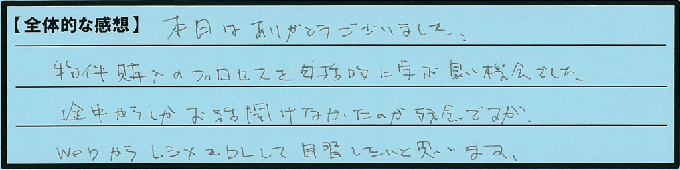 【全体的な感想】 本日はありがとうございました。
物件購入のプロセスを具体的に学ぶ良い機会でした。
途中からしかお話聞けなかったのが残念ですが、
WebからレジメをDLして自習したいと思います。